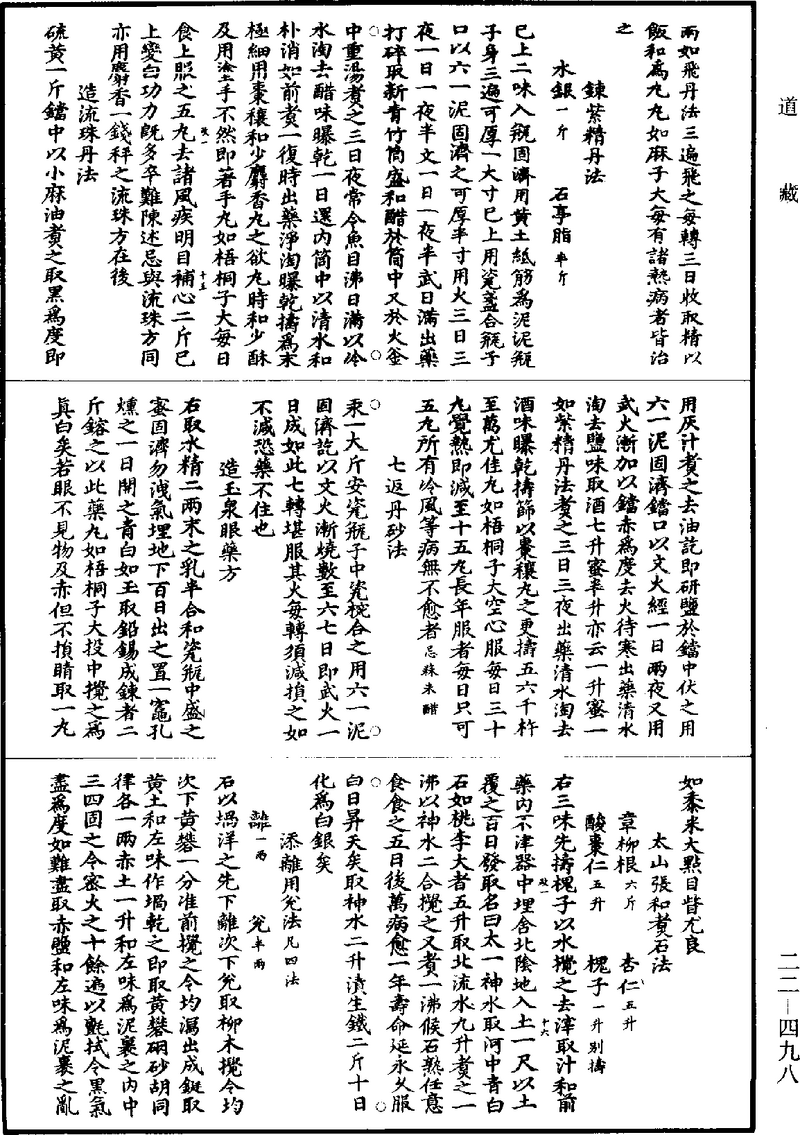 道藏
兩如飛丹法三遍飛之每轉三日收取精以
飯和爲丸丸如麻子大每有諸熱病者皆治
之
鍊紫精丹法
水銀一斤 石亭脂半斤
已上二味入瓶固濟用黃土紙筋爲泥泥瓶
子身三遍可厚一大寸已上用瓷盞合瓶子
口以六一泥固濟之可厚半寸用火三日三
夜一日一夜半文一日一夜半武日滿出藥
打碎取新青竹筒盛和醋於筒中又於火釜
中重湯煮之三日夜常令魚目沸日滿以冷
水淘去醋味曝乾一日還內筒中以清水和
朴消如前煮一復時出藥淨淘曝乾擣爲末
極細用棗穰和少麝香丸之欲丸時和少酥
及用塗手不然即著手丸如梧桐子大每日
食上服之五丸去諸風疾明目補心二斤已
上變白功力旣多卒難陳述忌與流珠方同
亦用麝香一錢秤之流珠方在後
造流珠丹法
硫黃一斤鐺中以小麻油煮之取黑爲度即
用灰汁煮之去油訖即研鹽於鐺中伏之用
六一泥固濟鐺口以文火經一日兩夜又用
武火漸加以鐺赤爲度去火待寒出藥清水
淘去鹽味取酒七升蜜半升亦云一升蜜一
如紫精丹法煮之三日三夜出藥清水淘去
酒味曝乾擣篩以棗穰丸之更擣五六千杵
至萬尤佳丸如梧桐子大空心服每日三十
丸覺熱即減至十五丸長年服者每日只可
五丸所有冷風等病無不愈者忌蒜米醋
七返丹砂法
汞一大斤安瓷瓶子中瓷椀合之用六一泥
固濟訖以文火漸燒數至六七日即武火一
日成如此七轉堪服其火每轉須減損之如
不減恐藥不住也
造玉泉眼藥方
右取水精二兩末之乳半合和瓷瓶中盛之
蜜固濟勿洩氣埋地下百日出之置一竈孔
燻之一日開之青白如玉取鉛錫成鍊者二
斤鎔之以此藥丸如梧桐子大投中攪之爲
眞白矣若眼不見物及赤但不損睛取一丸
如黍米大點目眥尤良
太山張和煮石法
章柳根六斤 杏仁五升
酸棗仁五升 槐子一升別擣
右三味先擣槐子以水攪之去滓取汁和前
藥內不津器中埋舍北陰地入土一尺以土
覆之百日發取名曰太一神水取河中青白
石如桃李大者五升取北流水九升煮之一
沸以神水二合攪之又煮一沸候石熟任意
食食之五日後萬病愈一年壽命延永久服
白日昇天矣取神水二升漬生鐵二斤十日
化爲白銀矣
添離用兊法凡四法
離一兩 兊半兩
石以堝洋之先下離次下兊取柳木攪令均
次下黃礬一分准前攪之令均瀉出成鋌取
黃土和左味作堝乾之即取黃礬硇砂胡同
律各一兩赤土一升和左味爲泥裹之內中
三四固之令密火之十餘遍以氈拭令黑氣
盡爲度如難盡取赤鹽和左味爲泥裹之亂
二二—四九八